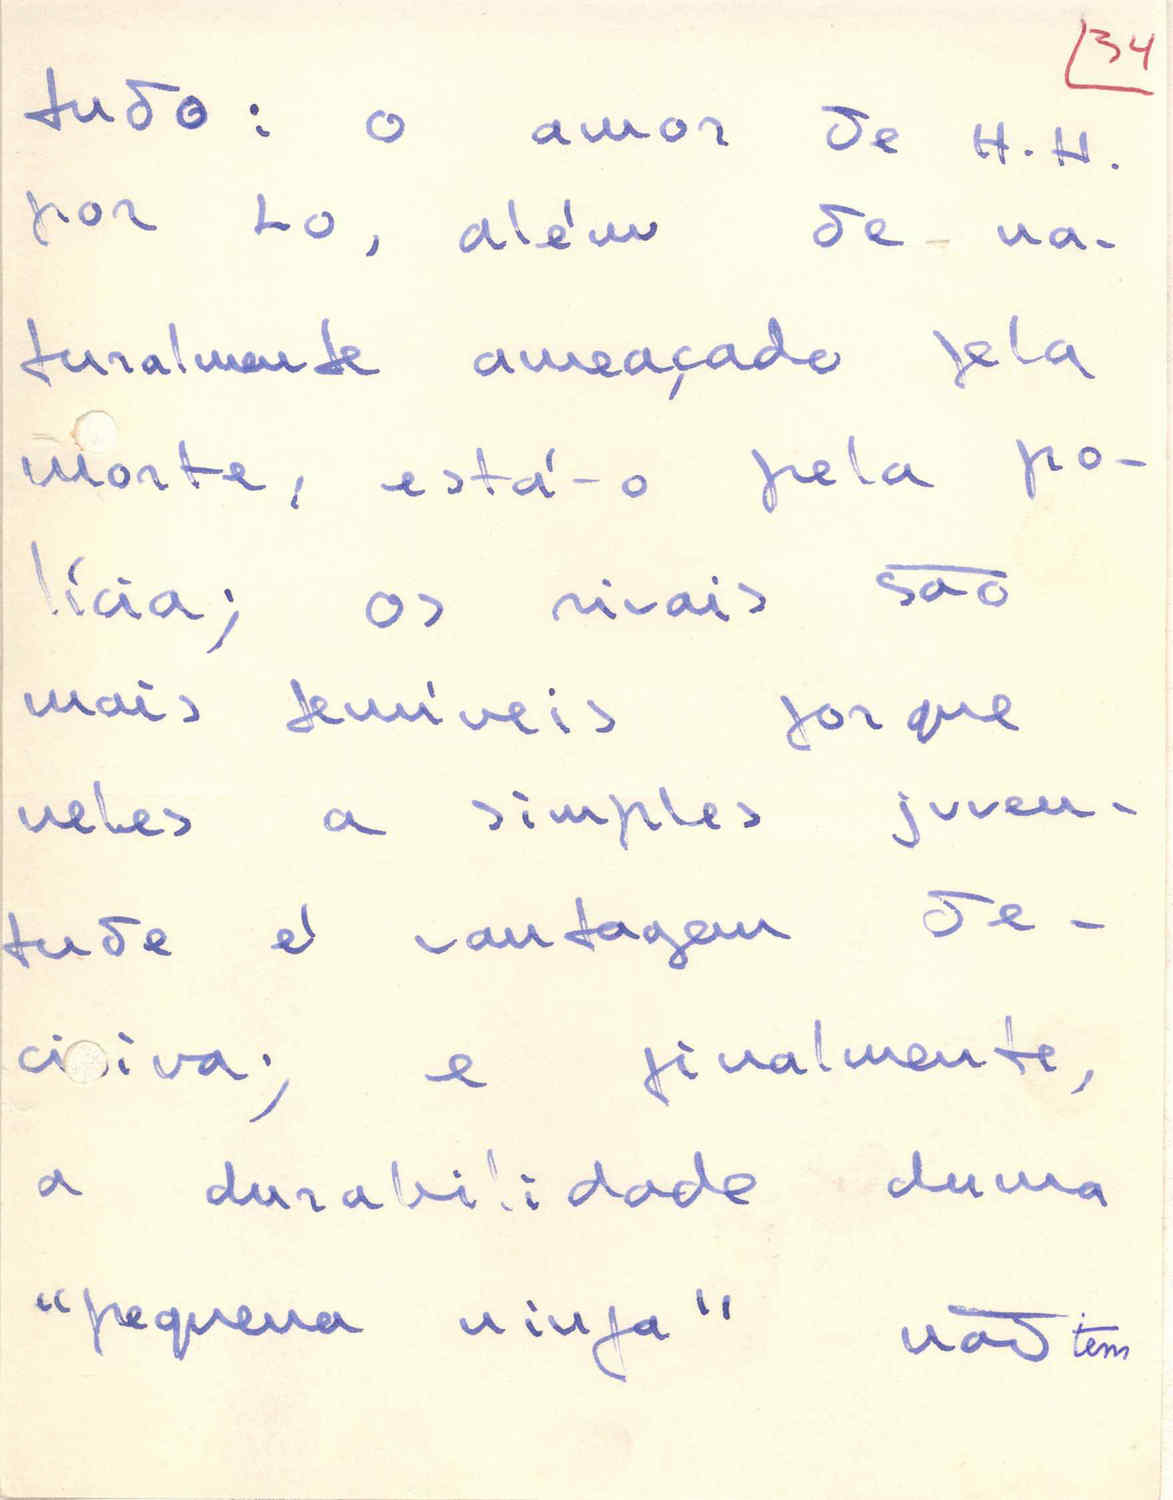 34
tudo: o amor de H.H.
por Lo, além de na-
turalmente ameaçado pela
morte, está-o pela po-
lícia; os rivais são
mais temíveis porque
neles a simples juven-
tude é vantagem de-
cisiva; e finalmente,
a durabilidade duma
"pequena ninfa" não tem